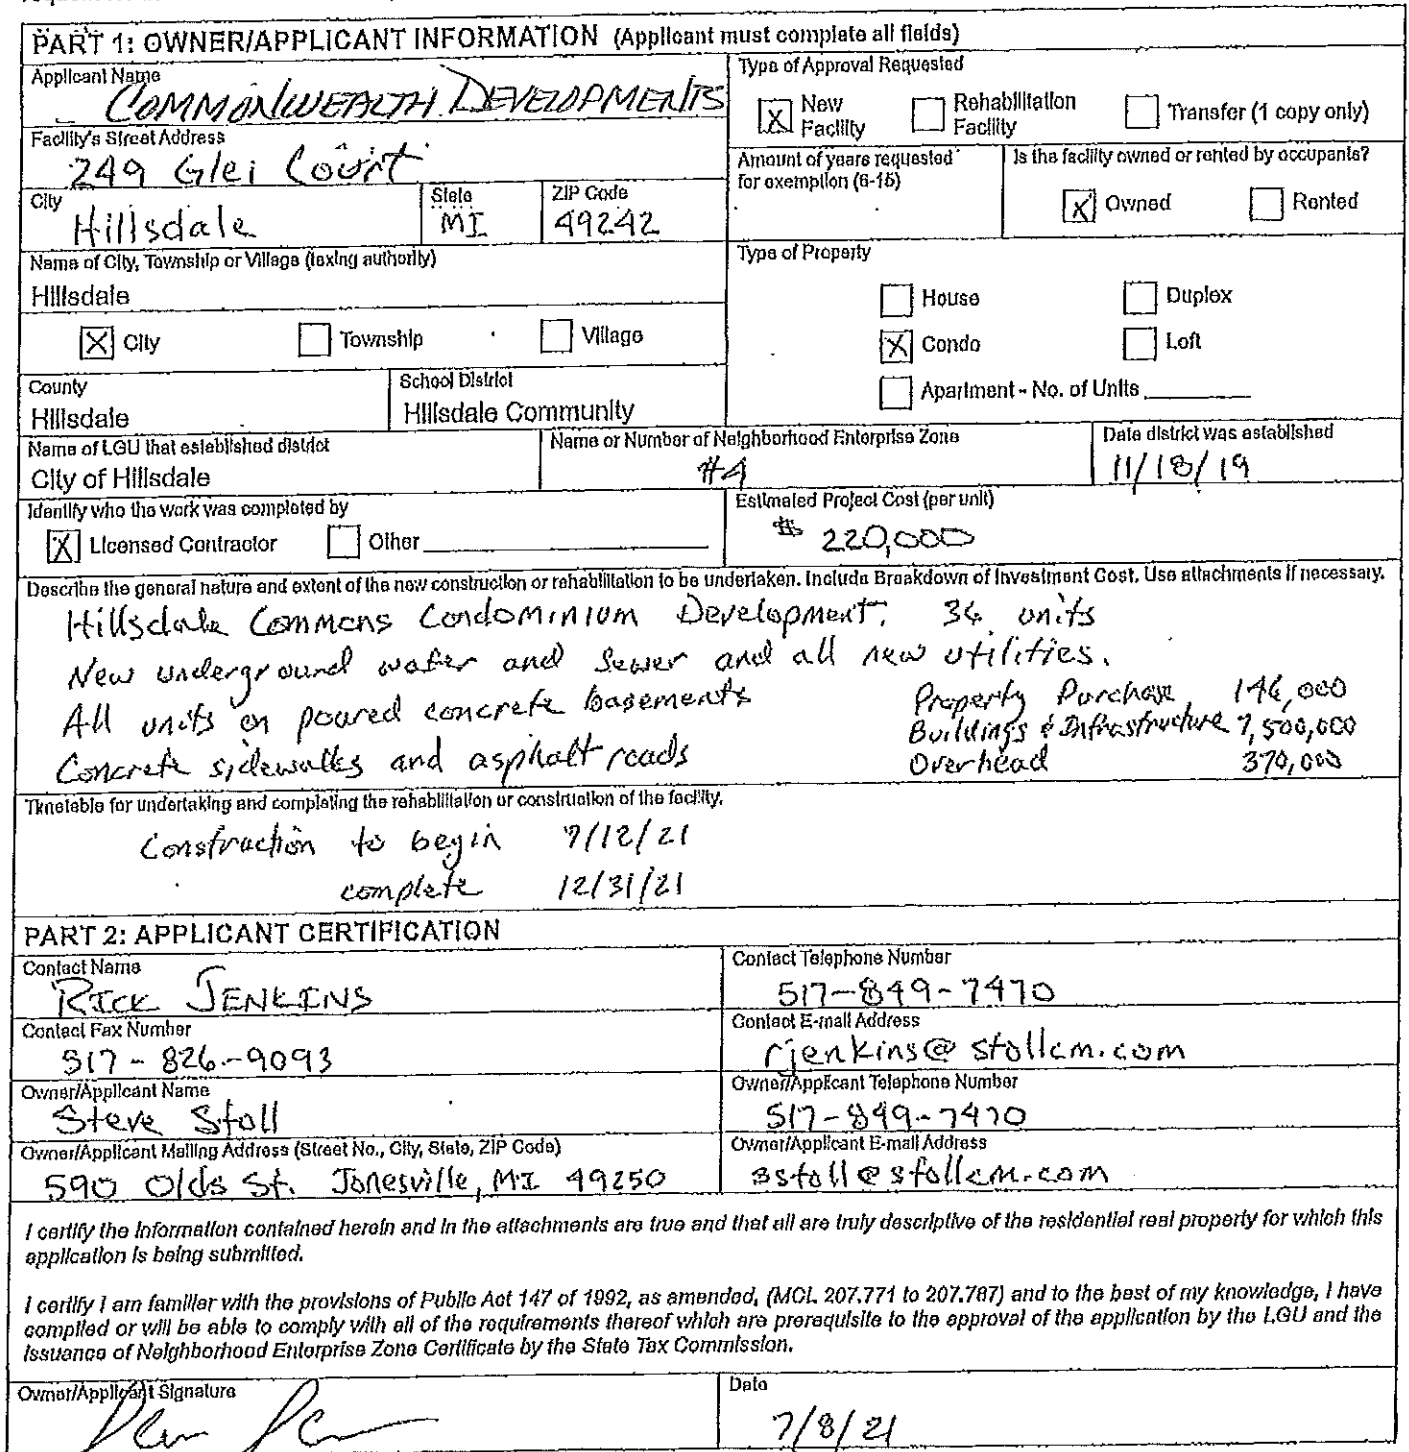 PART 1: OWNER/APPLICANT INFORMATION (Applicant must complete all fields)
Applicant Name
COMMONWEALTH DEVELOPMENTS
Type of Approval Requested
X New Facility
Rehabilitation Facility
Transfer (1 copy only)
Facility's Street Address
249 Glei Court
Amount of years requested for exemption (6-15)
Is the facility owned or rented by occupants?
X Owned
Rented
City
Hillsdale
State
MI
ZIP Code
49242
Name of City, Township or Village (taxing authority)
Hillsdale
X City
Township
Village
Type of Property
House
Duplex
X Condo
Loft
Apartment - No. of Units
County
Hillsdale
School District
Hillsdale Community
Name of LGU that established district
City of Hillsdale
Name or Number of Neighborhood Enterprise Zone
#4
Date district was established
11/18/19
Identify who the work was completed by
X Licensed Contractor
Other
Estimated Project Cost (per unit)
$ 220,000
Describe the general nature and extent of the new construction or rehabilitation to be undertaken. Include Breakdown of Investment Cost. Use attachments if necessary.
Hillsdale Commons Condominium Development. units
New underground water and sewer and all new utilities.
All units on poured concrete basements
Property Purchase
Buildings & Infrastructure 7,500,000
Concrete sidewalks and asphalt roads
Overhead 370,000
Timetable for undertaking and completing the rehabilitation or construction of the facility.
Construction to begin 7/12/21
complete 12/31/21
PART 2: APPLICANT CERTIFICATION
Contact Name
RICK JENKINS
Contact Telephone Number
517-849-7470
Contact Fax Number
517-826-9093
Contact E-mail Address
rjenkins@stollcm.com
Owner/Applicant Name
Steve Stoll
Owner/Applicant Telephone Number
517-849-7470
Owner/Applicant Mailing Address (Street No., City, State, ZIP Code)
590 Olds St. Jonesville, MI 49250
Owner/Applicant E-mail Address
sstoll@stollcm.com
I certify the information contained herein and in the attachments are true and that all are truly descriptive of the residential real property for which this
application is being submitted.
I certify I am familiar with the provisions of Public Act 147 of 1992, as amended, (MCL 207.771 to 207.787) and to the best of my knowledge, I have
complied or will be able to comply with all of the requirements thereof which are prerequisite to the approval of the application by the LGU and the
issuance of Neighborhood Enterprise Zone Certificate by the State Tax Commission.
Owner/Applicant Signature
Date
7/8/21